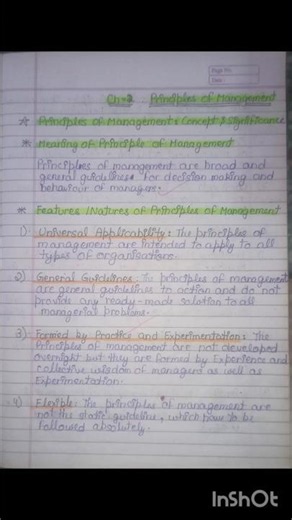 Page No.
Date
Ch-2 Principles of Management
* Principles of Management: Concept & Significance
* Meaning of Principle of Management
Principles of management are broad and
general guidelines for decision making and
behaviour of managers.
* Features / Natures of Principles of Management
1) Universal Applicability: The principles of
management are intended to apply to all
types of organisations.
2) General Guidelines: The principles of management
are general guidelines to action and do not
provide any ready-made solution to all
managerial problems.
3) Formed by Practice and Experimentation: The
Principles of management are not developed
overnight but they are formed by Experience and
collective wisdom of managers as well as
Experimentation.
4) Flexible: The principles of management are
not the static guideline, which have to be
followed absolutely.
InShOt